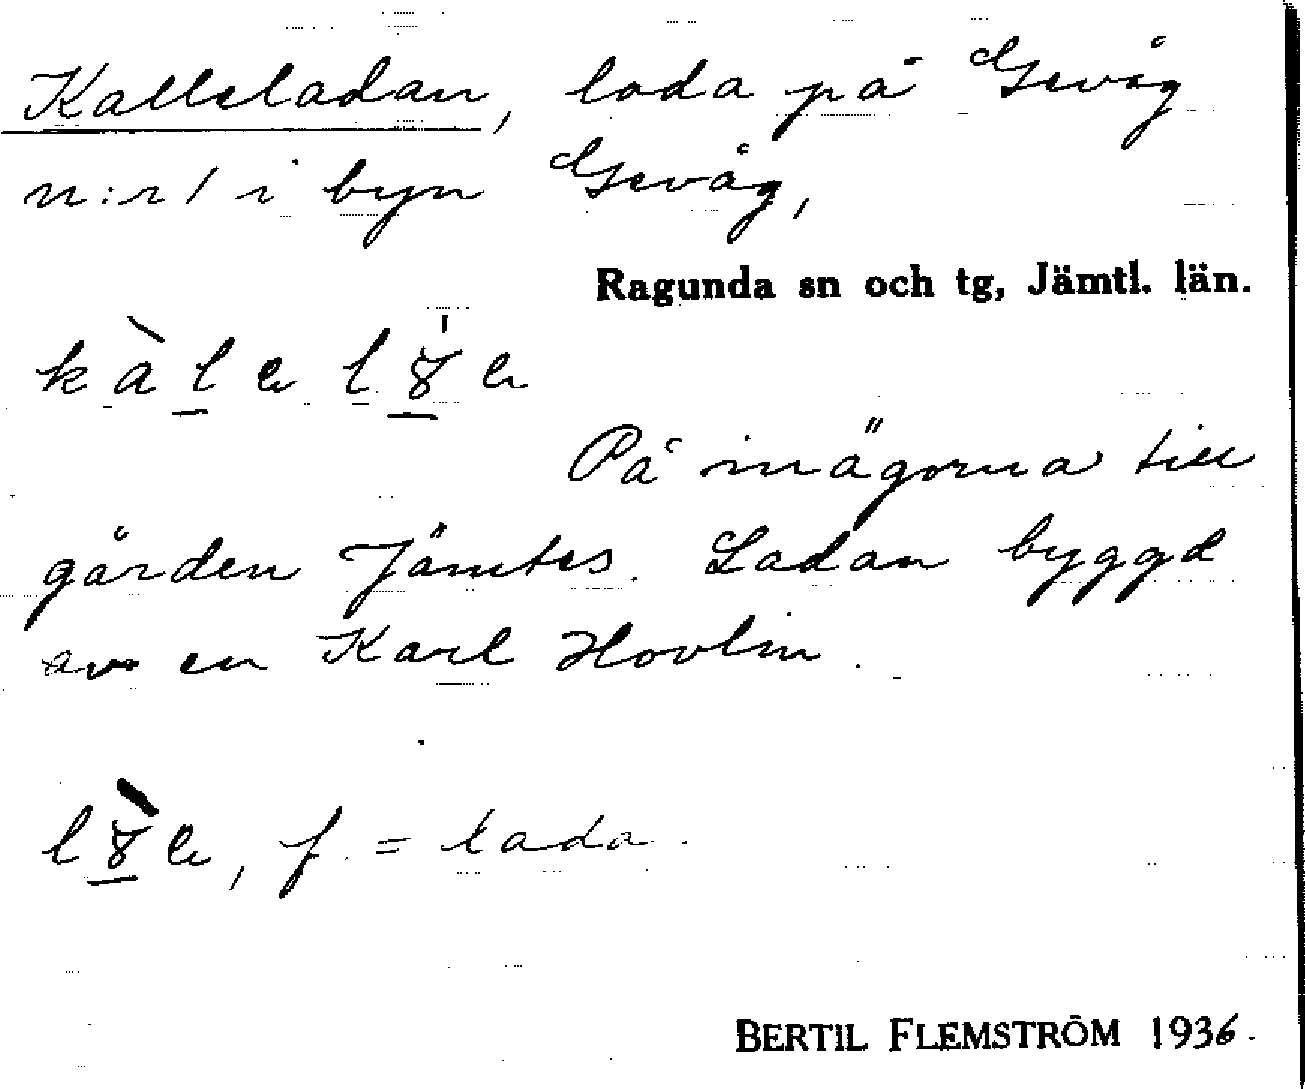 Kalleladan, lada på Gevåg
n:r 1 i byn Gevåg,
Ragunda sn och tg, Jämtl. län.
På inägorna till
gården Jämtes. Ladan byggd
av en Karl Hovlin.
f. = lada.
BERTIL FLEMSTRÖM 1936.